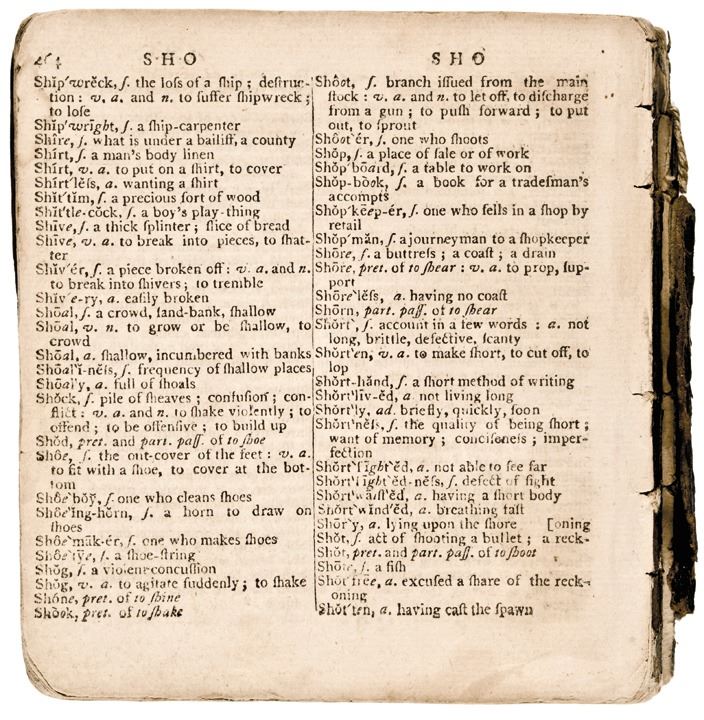 264 SHO SHO
Shĭp'wrĕck, ſ. the loſs of a ſhip ; deſtruc-
tion : v. a. and n. to ſuffer ſhipwreck ;
to loſe
Shĭp'wrīght, ſ. a ſhip-carpenter
Shīre, ſ. what is under a bailiff, a county
Shĭrt, ſ. a man's body linen
Shĭrt, v. a. to put on a ſhirt, to cover
Shĭrt'lĕſs, a. wanting a ſhirt
Shĭt'tĭm, ſ. a precious ſort of wood
Shĭt'tle-cŏck, ſ. a boy's play-thing
Shīve, ſ. a thick ſplinter ; ſlice of bread
Shīve, v. a. to break into pieces, to ſhat-
ter
Shĭv'ĕr, ſ. a piece broken off : v. a. and n.
to break into ſhivers ; to tremble
Shĭv'e-ry, a. eaſily broken
Shōal, ſ. a crowd, ſand-bank, ſhallow
Shōal, v. n. to grow or be ſhallow, to
crowd
Shōal, a. ſhallow, incumbered with banks
Shōal'ĭ-nĕſs, ſ. frequency of ſhallow places
Shōal'y, a. full of ſhoals
Shŏck, ſ. pile of ſheaves ; confuſion ; con-
flict : v. a. and n. to ſhake violently ; to
offend ; to be offenſive ; to build up
Shŏd, pret. and part. paſſ. of to ſhoe
Shôe, ſ. the out-cover of the feet : v. a.
to fit with a ſhoe, to cover at the bot-
tom
Shôe'bŏy̆, ſ. one who cleans ſhoes
Shôe'ĭng-hŏrn, ſ. a horn to draw on
ſhoes
Shôe'māk-ĕr, ſ. one who makes ſhoes
Shôe'tȳe, ſ. a ſhoe-ſtring
Shŏg, ſ. a violent concuſſion
Shŏg, v. a. to agitate ſuddenly ; to ſhake
Shŏne, pret. of to ſhine
Shŏok, pret. of to ſhake
Shôot, ſ. branch iſſued from the main
ſtock : v. a. and n. to let off, to diſcharge
from a gun ; to puſh forward ; to put
out, to ſprout
Shôot'ĕr, ſ. one who ſhoots
Shŏp, ſ. a place of ſale or of work
Shŏp'bōard, ſ. a table to work on
Shŏp-bŏok, ſ. a book for a tradeſman's
accompts
Shŏp'kēep-ĕr, ſ. one who ſells in a ſhop by
retail
Shŏp'măn, ſ. a journeyman to a ſhopkeeper
Shōre, ſ. a buttreſs ; a coaſt ; a drain
Shōre, pret. of to ſhear : v. a. to prop, ſup-
port
Shōre'lĕſs, a. having no coaſt
Shŏrn, part. paſſ. of to ſhear
Shŏrt', ſ. account in a few words : a. not
long, brittle, defective, ſcanty
Shŏrt'en, v. a. to make ſhort, to cut off, to
lop
Shŏrt-hănd, ſ. a ſhort method of writing
Shŏrt'līv-ĕd, a. not living long
Shŏrt'ly, ad. briefly, quickly, ſoon
Shŏrt'nĕſs, ſ. the quality of being ſhort ;
want of memory ; conciſeneſs ; imper-
fection
Shŏrt'ſīght'ĕd, a. not able to ſee far
Shŏrt'ſīght'ĕd-nĕſs, ſ. defect of ſight
Shŏrt'wāiſt'ĕd, a. having a ſhort body
Shŏrt'wĭnd'ĕd, a. breathing faſt
Shōr'y, a. lying upon the ſhore [oning
Shŏt, ſ. act of ſhooting a bullet ; a reck-
Shŏt, pret. and part. paſſ. of to ſhoot
ſ. a fiſh
Shŏt'frēe, a. excuſed a ſhare of the reck-
oning
Shŏt'ten, a. having caſt the ſpawn